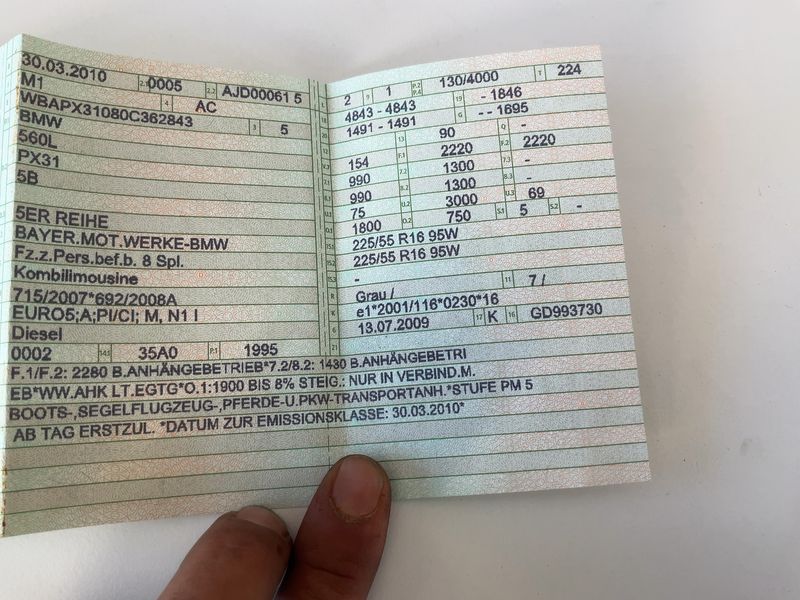 30.03.2010 2.1 0005 2.2 AJD00061 5
M1 4 AC
WBAPX31080C362843 3 5
BMW
560L
PX31
5B
5ER REIHE
BAYER.MOT.WERKE-BMW
Fz.z.Pers.bef.b. 8 Spl.
Kombilimousine
715/2007*692/2008A
EURO5;A;PI/CI; M, N1 I
Diesel
0002 14.1 35A0 P.1 1995
2 9 1 P.2 P.4 130/4000 T 224
18 4843 - 4843 19 - 1846
20 1491 - 1491 G - - 1695
12 - 13 90 Q -
V.7 154 F.1 2220 F.2 2220
7.1 990 7.2 1300 7.3 -
8.1 990 8.2 1300 8.3 -
U.1 75 U.2 3000 U.3 69
O.1 1800 O.2 750 S.1 5 S.2 -
15.1 225/55 R16 95W
15.2 225/55 R16 95W
15.3 -
R Grau / 11 7 /
K e1*2001/116*0230*16
6 13.07.2009 17 K 16 GD993730
21
F.1/F.2: 2280 B.ANHÄNGEBETRIEB*7.2/8.2: 1430 B.ANHÄNGEBETRI
EB*WW.AHK LT.EGTG*O.1:1900 BIS 8% STEIG.: NUR IN VERBIND.M.
BOOTS-,SEGELFLUGZEUG-,PFERDE-U.PKW-TRANSPORTANH.*STUFE PM 5
AB TAG ERSTZUL. *DATUM ZUR EMISSIONSKLASSE: 30.03.2010*